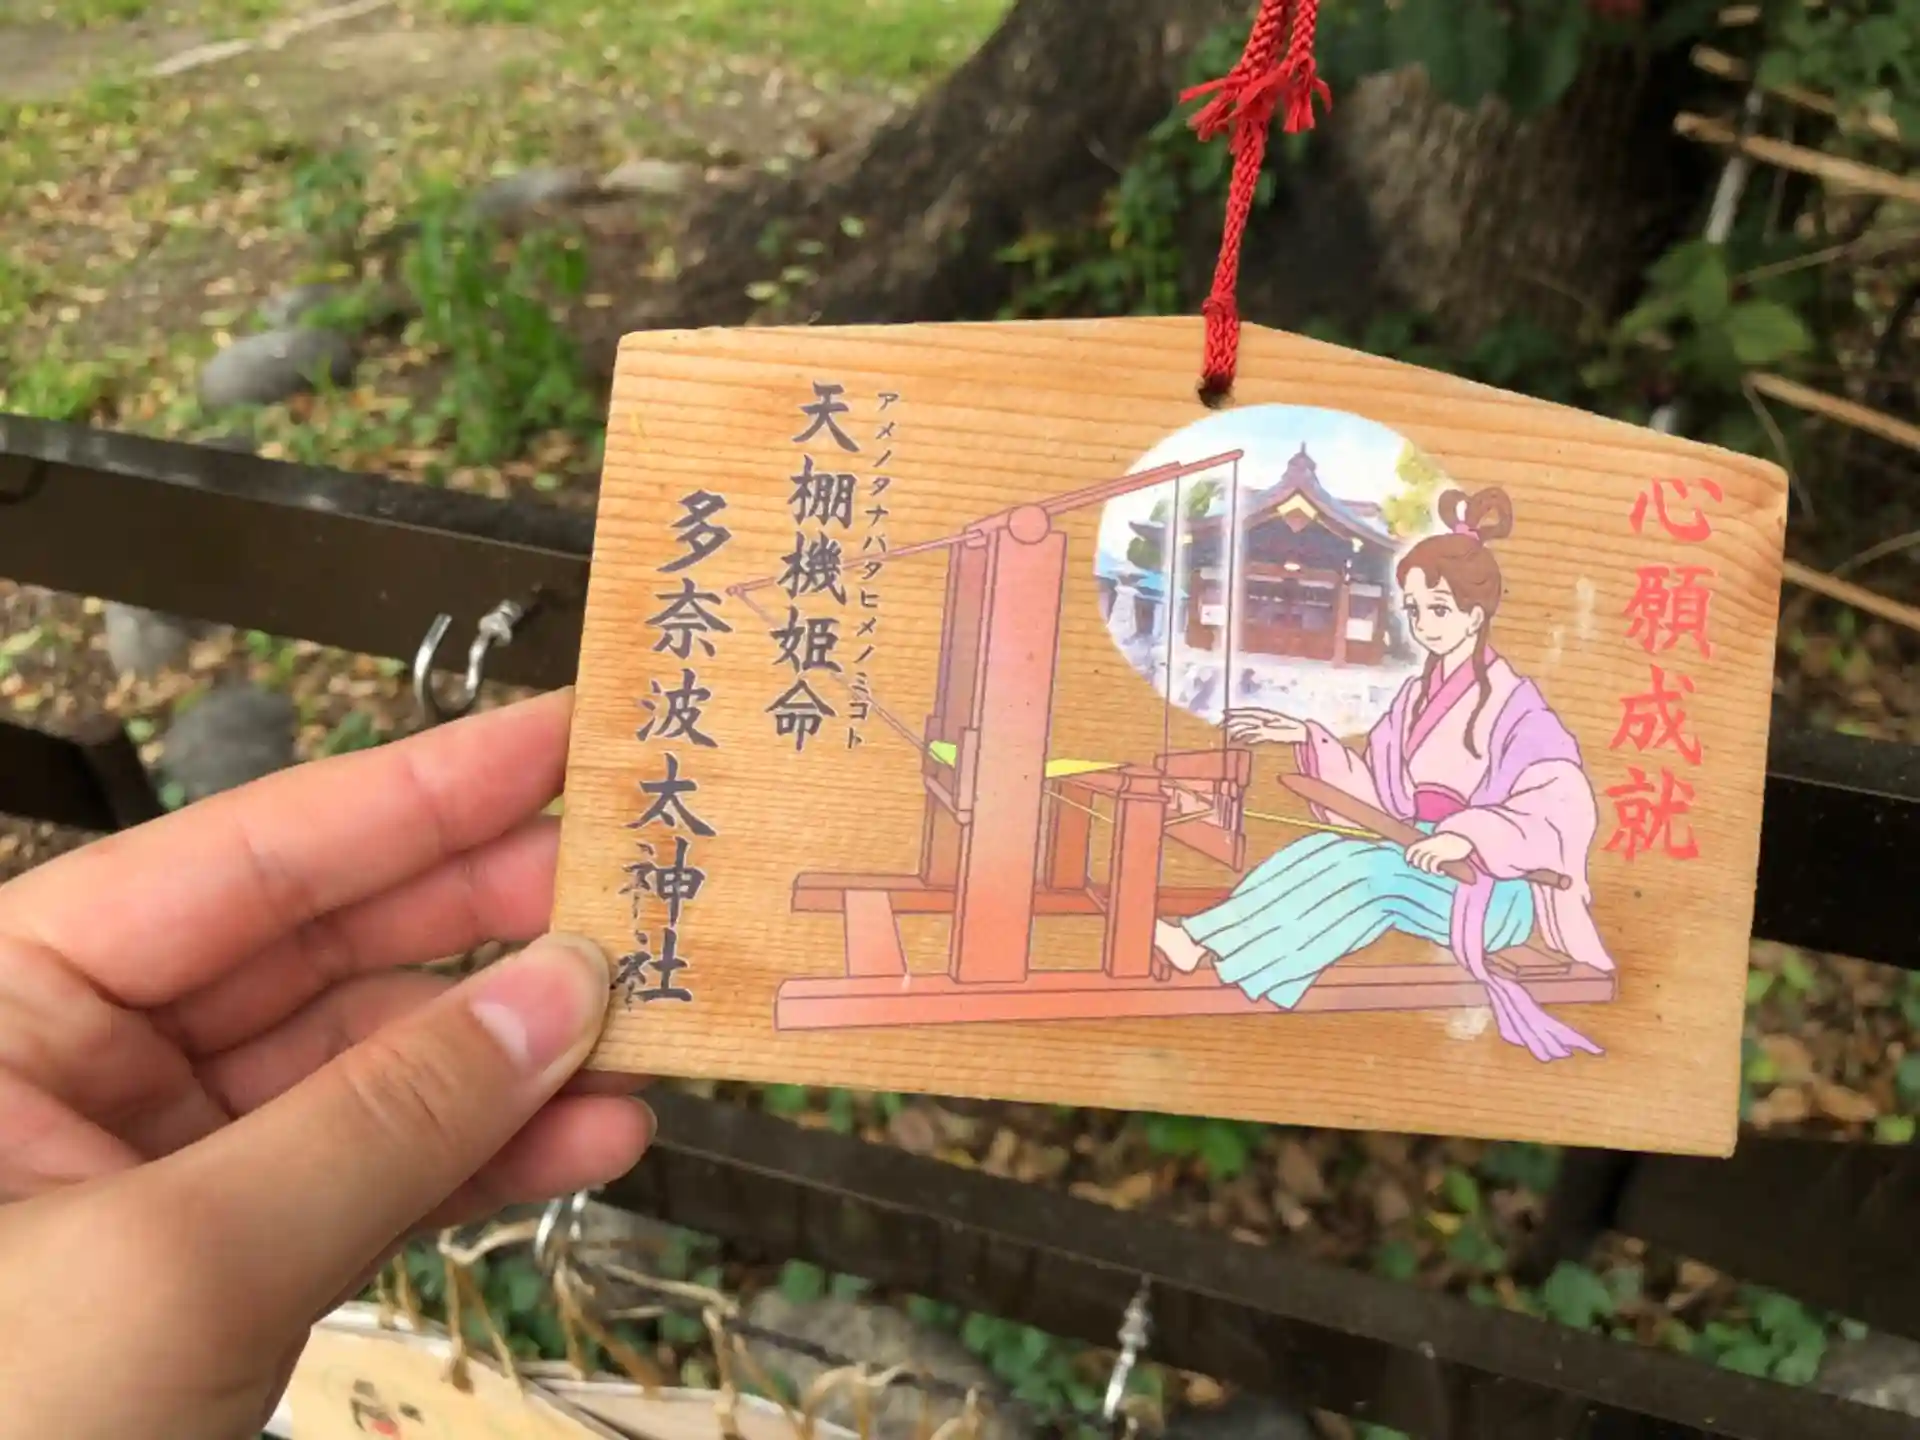 心願成就
アメノタナバタヒメノミコト
天棚機姫命
多奈波太神社